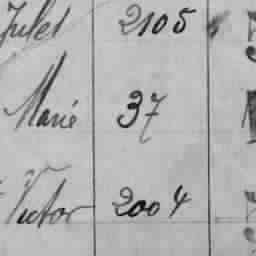 Jules 2105
Marie 37
Victor 2004